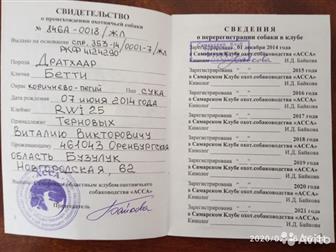 СВИДЕТЕЛЬСТВО
о происхождении охотничьей собаки
№ 146А-0018/ЖЛ
Выдано на основании спр. 353-14/0001-7/ЖЛ
РКФ 4124290
Порода Дратхаар
Кличка Бетти
Окрас коричнево-пегий Пол сука
Дата рождения 07 июня 2014 года
Клеймо RWI 25
Владелец Терновых
Виталию Викторовичу
Проживающему 461043 Оренбургская
область Бузулук
Новгородская, 62
областным клубом охотничьего
собаководства «АССА»
Председатель
СВЕДЕНИЯ
о перерегистрации собаки в клубе
Зарегистрирована 01 декабря 2014 года
в Самарском Клубе охот.собаководства «АССА»
Кинолог И.Д. Байкова
Зарегистрирована " " 2015 года
в Самарском Клубе охот.собаководства «АССА»
Кинолог И.Д. Байкова
Зарегистрирована " " 2016 года
в Самарском Клубе охот.собаководства «АССА»
Кинолог И.Д. Байкова
Зарегистрирована " " 2017 года
в Самарском Клубе охот.собаководства «АССА»
Кинолог И.Д. Байкова
Зарегистрирована " " 2018 года
в Самарском Клубе охот.собаководства «АССА»
Кинолог И.Д. Байкова
Зарегистрирована " " 2019 года
в Самарском Клубе охот.собаководства «АССА»
Кинолог И.Д. Байкова
Зарегистрирована " " 2020 года
в Самарском Клубе охот.собаководства «АССА»
Кинолог И.Д. Байкова
Зарегистрирована " " 2021 года
в Самарском Клубе охот.собаководства «АССА»
Кинолог И.Д. Байкова
Avito